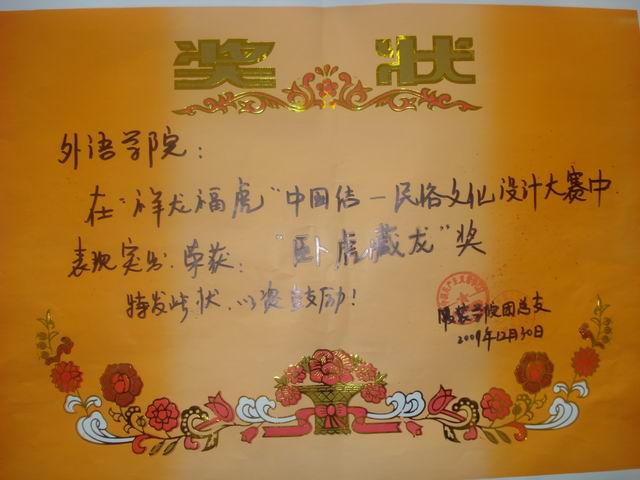 奖状
外语学院：
在"祥龙福虎"中国传一民俗文化设计大赛中
表现突出.荣获："卧虎藏龙"奖
特发此状.以资鼓励！
服装学院团总支
2009年12月30日